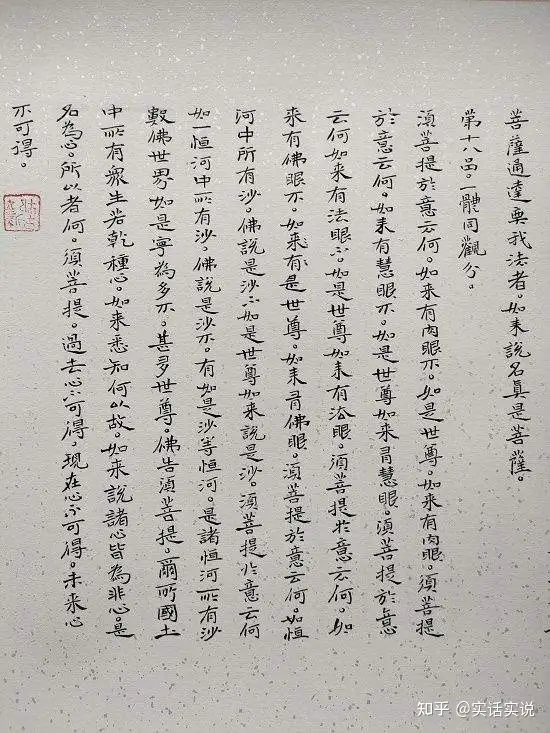 菩薩通達無我法者。如来說名真是菩薩。
第十八品一體同觀分。
須菩提於意云何。如来有肉眼不。如是世尊。如来有肉眼。須菩提
於意云何。如来有慧眼不。如是世尊如来有慧眼。須菩提於意
云何如来有法眼不。如是世尊如来有法眼。須菩提於意云何。如
来有佛眼不。如来有是世尊。如来有佛眼。須菩提於意云何。如恒
河中所有沙。佛說是沙不如是世尊如来說是沙。須菩提於意云何
如一恒河中所有沙。佛說是沙不。有如是沙等恒河。是諸恒河所有沙
數佛世界。如是寧為多不。甚多世尊。佛告須菩提。爾所國土
中所有眾生若乾種心。如来悉知何以故。如来說諸心皆為非心。是
名為心。所以者何。須菩提。過去心不可得。現在心不可得。未来心
不可得。
知乎 @实话实说